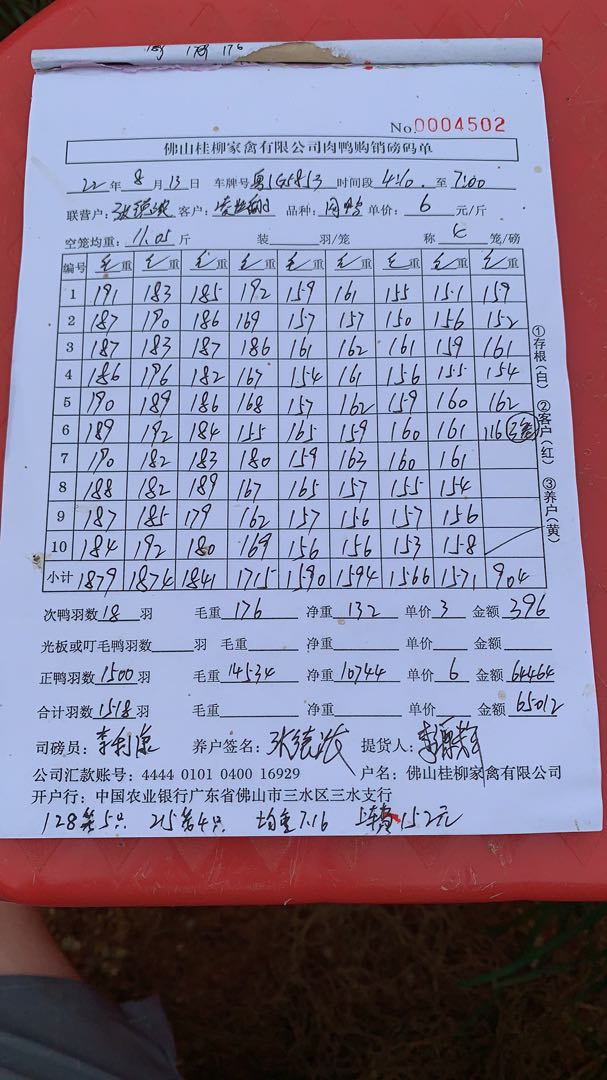 176
No.0004502
佛山桂柳家禽有限公司肉鸭购销磅码单
22年8月13日 车牌号 粤 时间段 4:10. 至 7:00
联营户: 客户: 品种: 肉鸭 单价: 6 元/斤
空笼均重: 11.05 斤 装 羽/笼 称 笼/磅
编号 毛重 毛重 毛重 毛重 毛重 毛重 毛重 毛重 毛重
1 191 183 185 192 159 161 155 151 159
2 187 190 186 169 157 157 150 156 152
3 187 183 187 186 161 162 161 159 161
4 186 196 182 167 154 161 156 155 154
5 190 189 186 168 157 162 159 160 162
6 189 192 184 155 165 159 160 161 116
7 190 182 183 180 159 163 160 161
8 188 182 189 167 165 157 155 154
9 187 185 179 162 157 156 157 156
10 184 192 180 169 156 156 153 158
小计 1879 1874 1841 1715 1590 1594 1566 1571 904
①存根(白) ②客户(红) ③养户(黄)
次鸭羽数 18 羽 毛重 176 净重 132 单价 3 金额 396
光板或叮毛鸭羽数 羽 毛重 净重 单价 金额
正鸭羽数 1500 羽 毛重 14534 净重 10744 单价 6 金额 64464
合计羽数 1518 羽 毛重 净重 单价 金额 65012
司磅员: 养户签名: 提货人:
公司汇款账号: 4444 0101 0400 16929 户名: 佛山桂柳家禽有限公司
开户行: 中国农业银行广东省佛山市三水区三水支行
128笼5只 215笼4只 均重7.16 152元